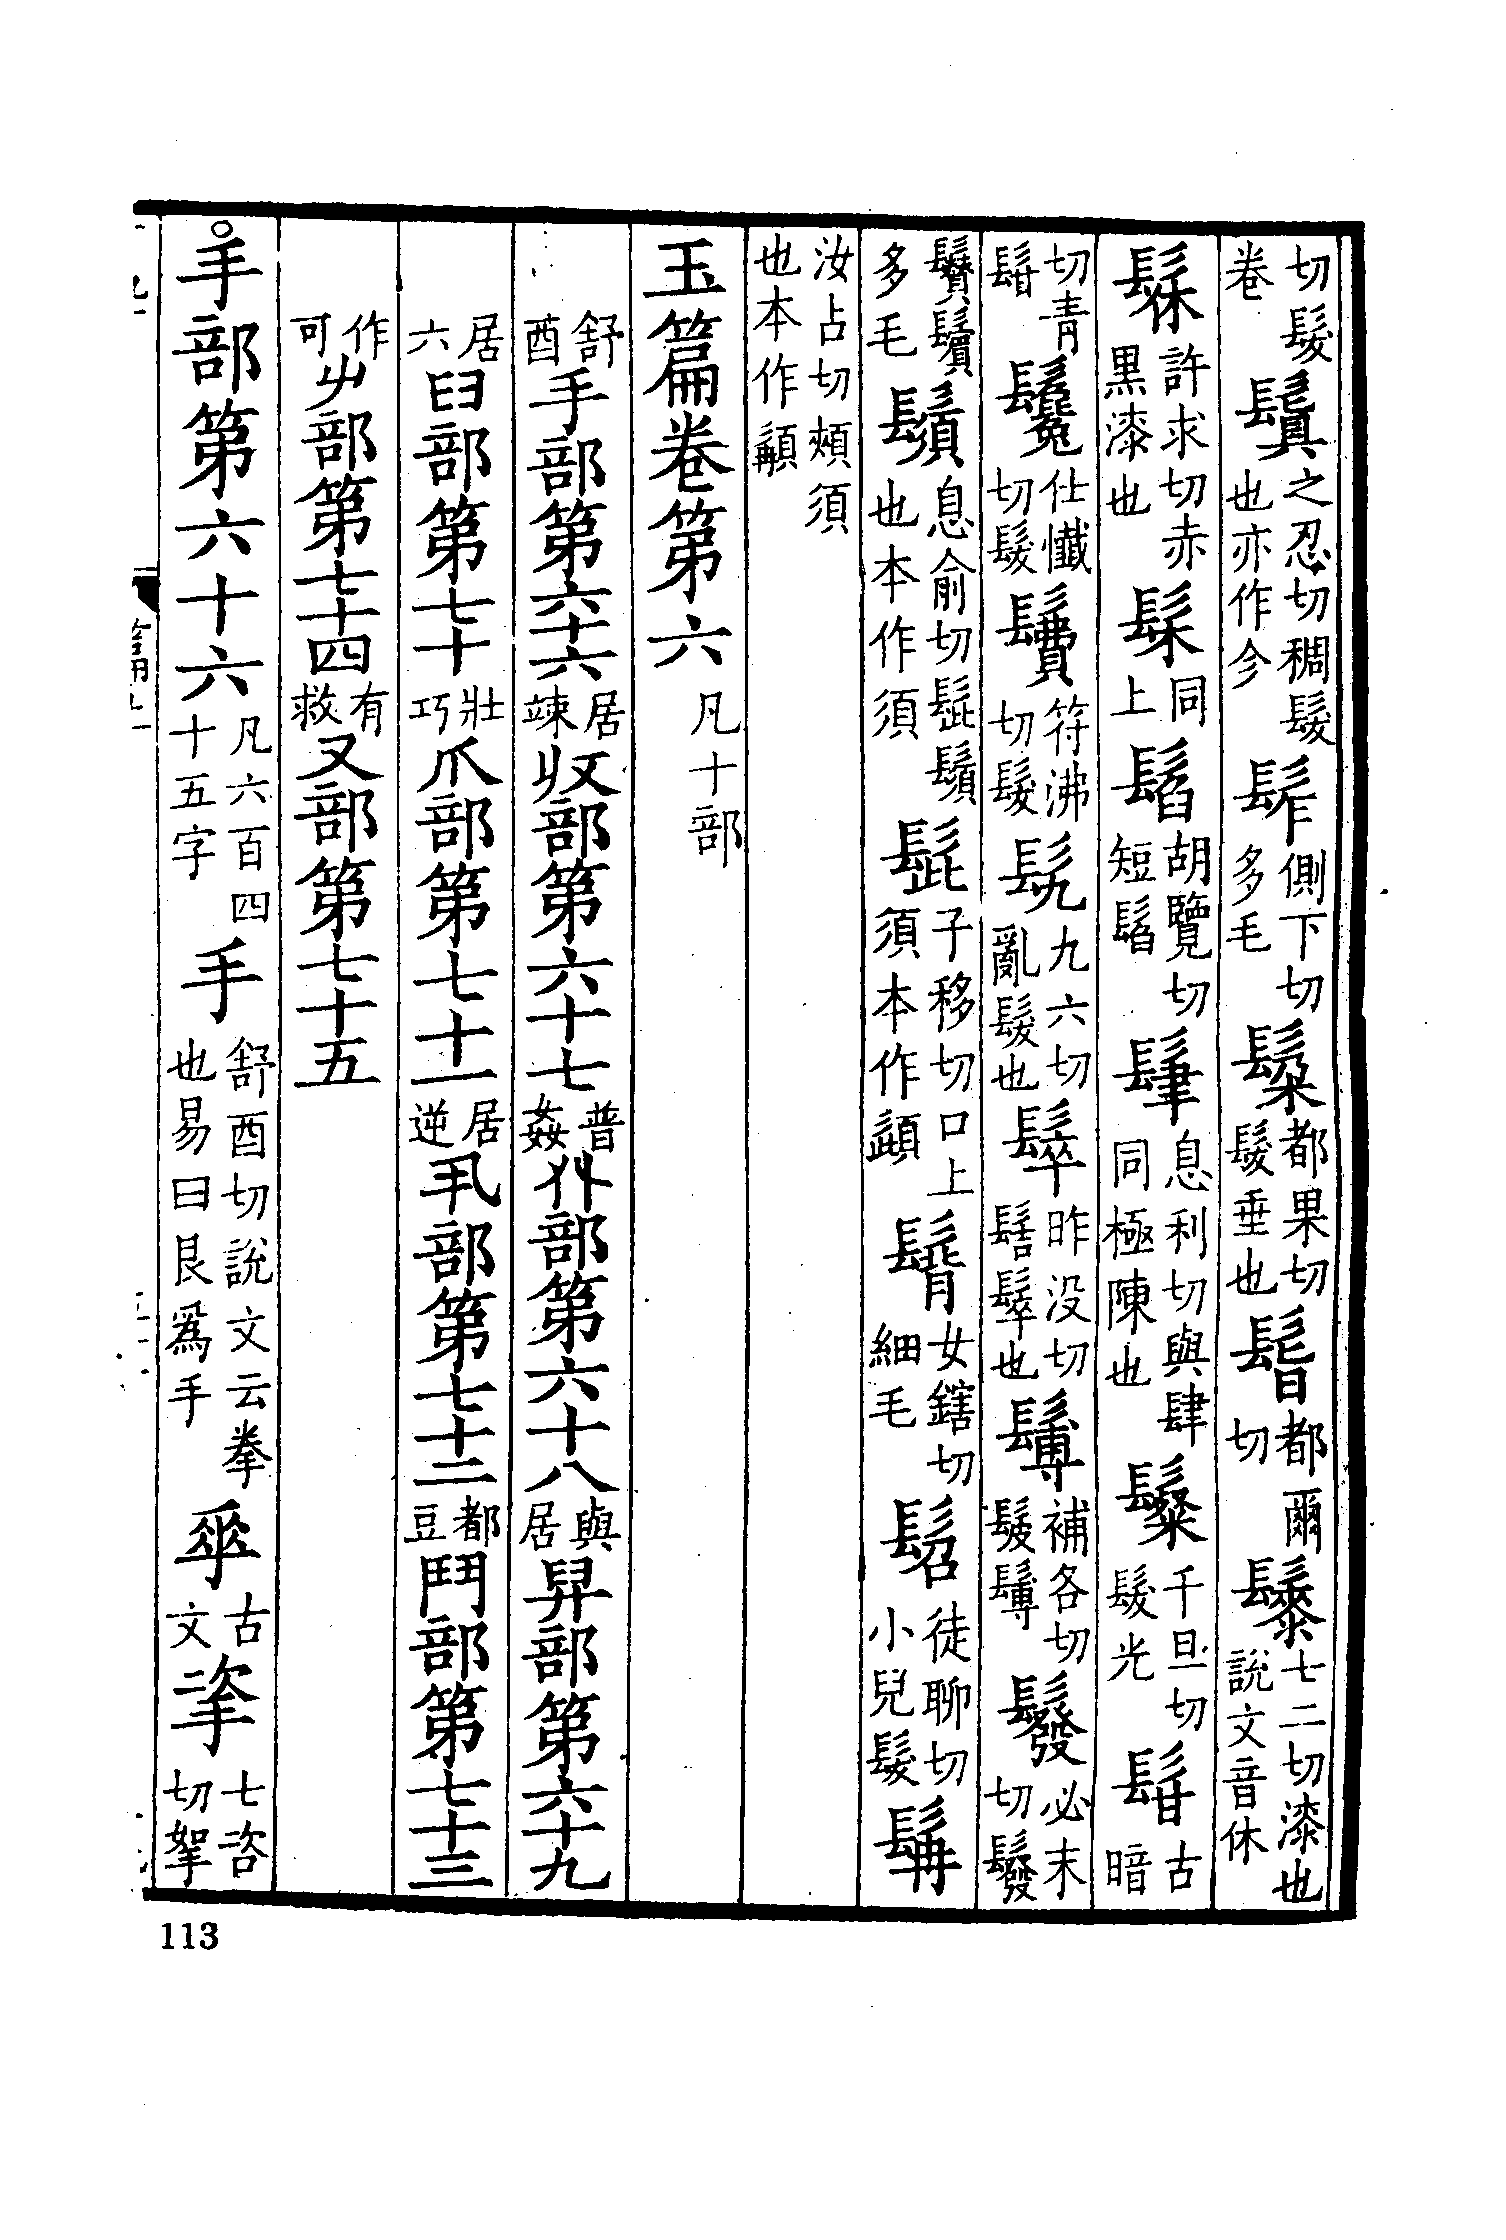 切髮卷鬒之忍切稠髮也亦作㐱髿側下切多毛鬌都果切髮垂也䰂都爾切髤七二切漆也說文音休
髹許求切赤黑漆也髤同上䯻胡覽切短䯻䯱息利切與肆同極陳也䰗千旦切髮光䯍古暗
切青䯍䰖仕懺切髮䰀符沸切髮䯌九六切亂髮也䯿昨没切髻䯿也䰊補各切髲䰊䰁必末切䰁
鬢鬚多毛鬚息俞切髭鬚也本作須髭子移切口上須本作頾䯷女鎋切細毛髫徒聊切小兒髮髯
汝占切頰須也本作䫇
玉篇卷第六凡十部
舒酉手部第六十六居竦収部第六十七普姦𠬜部第六十八與居舁部第六十九
居六𦥑部第七十壯巧爪部第七十一居逆丮部第七十二都豆鬥部第七十三
作可𠂇部第七十四有救又部第七十五
手部第六十六凡六百四十五字手舒酉切說文云拳也易曰艮爲手𠦒古文㧗七咨切挐
113